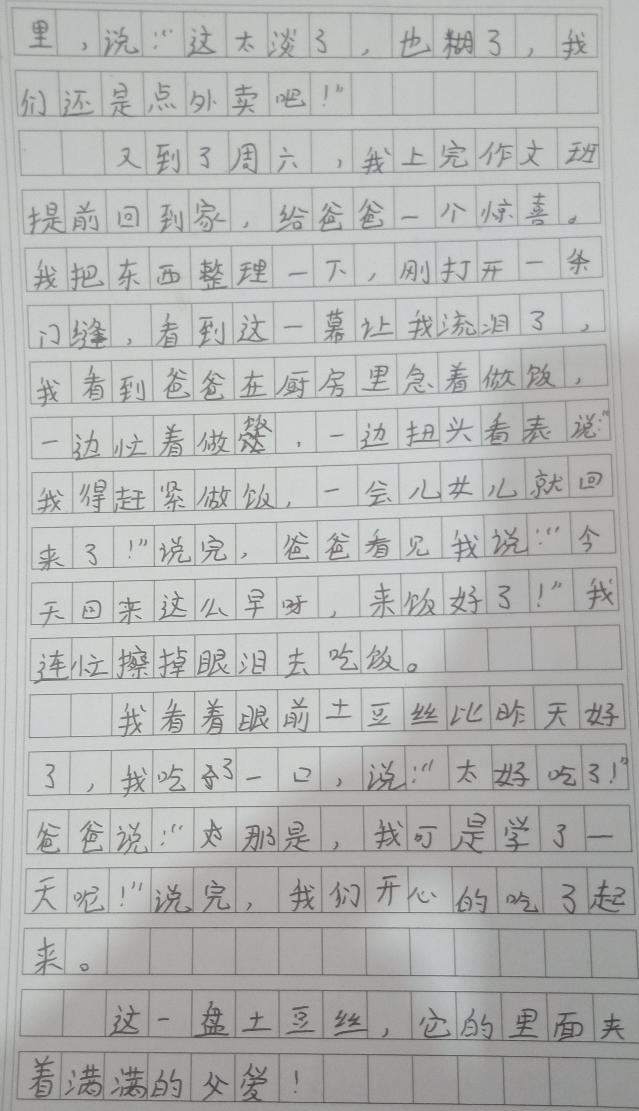 里，说：“这太淡了，也糊了，我
们还是点外卖吧！”
又到了周六，我上完作文班
提前回到家，给爸爸一个惊喜。
我把东西整理一下，刚打开一条
门缝，看到这一幕让我流泪了，
我看到爸爸在厨房里急着做饭，
一边忙着做，一边扭头看表说：“
我得赶紧做饭，一会儿女儿就回
来了！”说完，爸爸看见我说：“今
天回来这么早呀，来饭好了！”我
连忙擦掉眼泪去吃饭。
我看着眼前土豆丝比昨天好
了，我吃了一口，说：“太好吃了！”
爸爸说：“那是，我可是学了一
天呢！”说完，我们开心的吃了起
来。
这一盘土豆丝，它的里面夹
着满满的父爱！